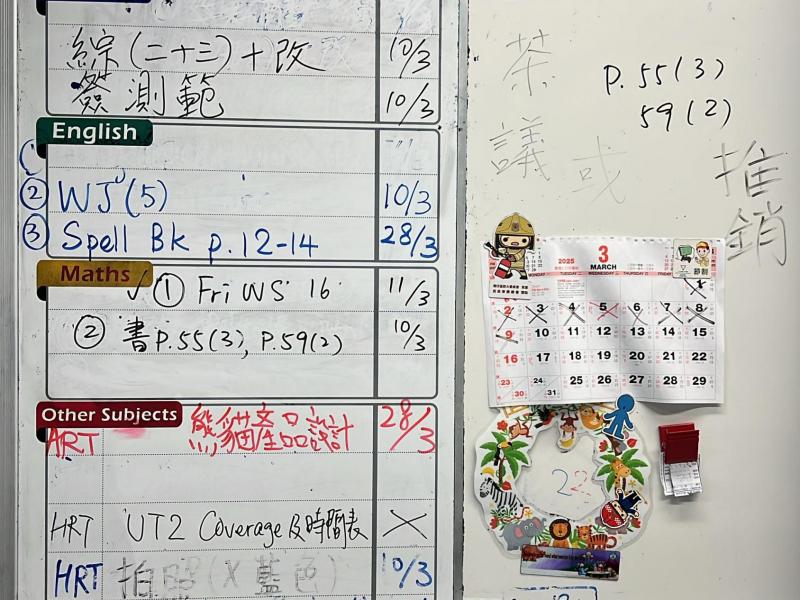 綜(二十三)+改 10/3
簽測範 10/3
English
①
② WJ(5) 10/3
③ Spell Bk p.12-14 28/3
Maths
✓ ① Fri WS 16 11/3
② 書P.55(3), P.59(2) 10/3
Other Subjects
ART 熊貓產品設計 28/3
HRT UT2 Coverage及時間表 ×
HRT 拍照(X藍色) 10/3
茶
議
或
P.55(3)
59(2)
推
銷
2025 3 MARCH
節制
MONDAY TUESDAY WEDNESDAY THURSDAY FRIDAY
1
2 3 4 5 6 7 8
9 10 11 12 13 14 15
16 17 18 19 20 21 22
23 24 25 26 27 28 29
30 31
22